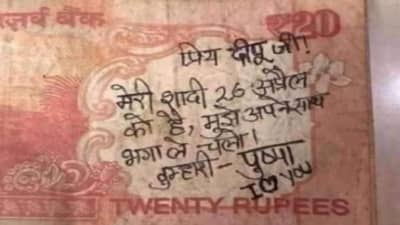 ज़र्व बैंक
₹20
प्रिय दीपू जी!
मेरी शादी 26 अप्रैल
को है, मुझे अपने साथ
भगा ले चलो।
तुम्हारी - पुष्पा
I ♡ You
TWENTY RUPEES